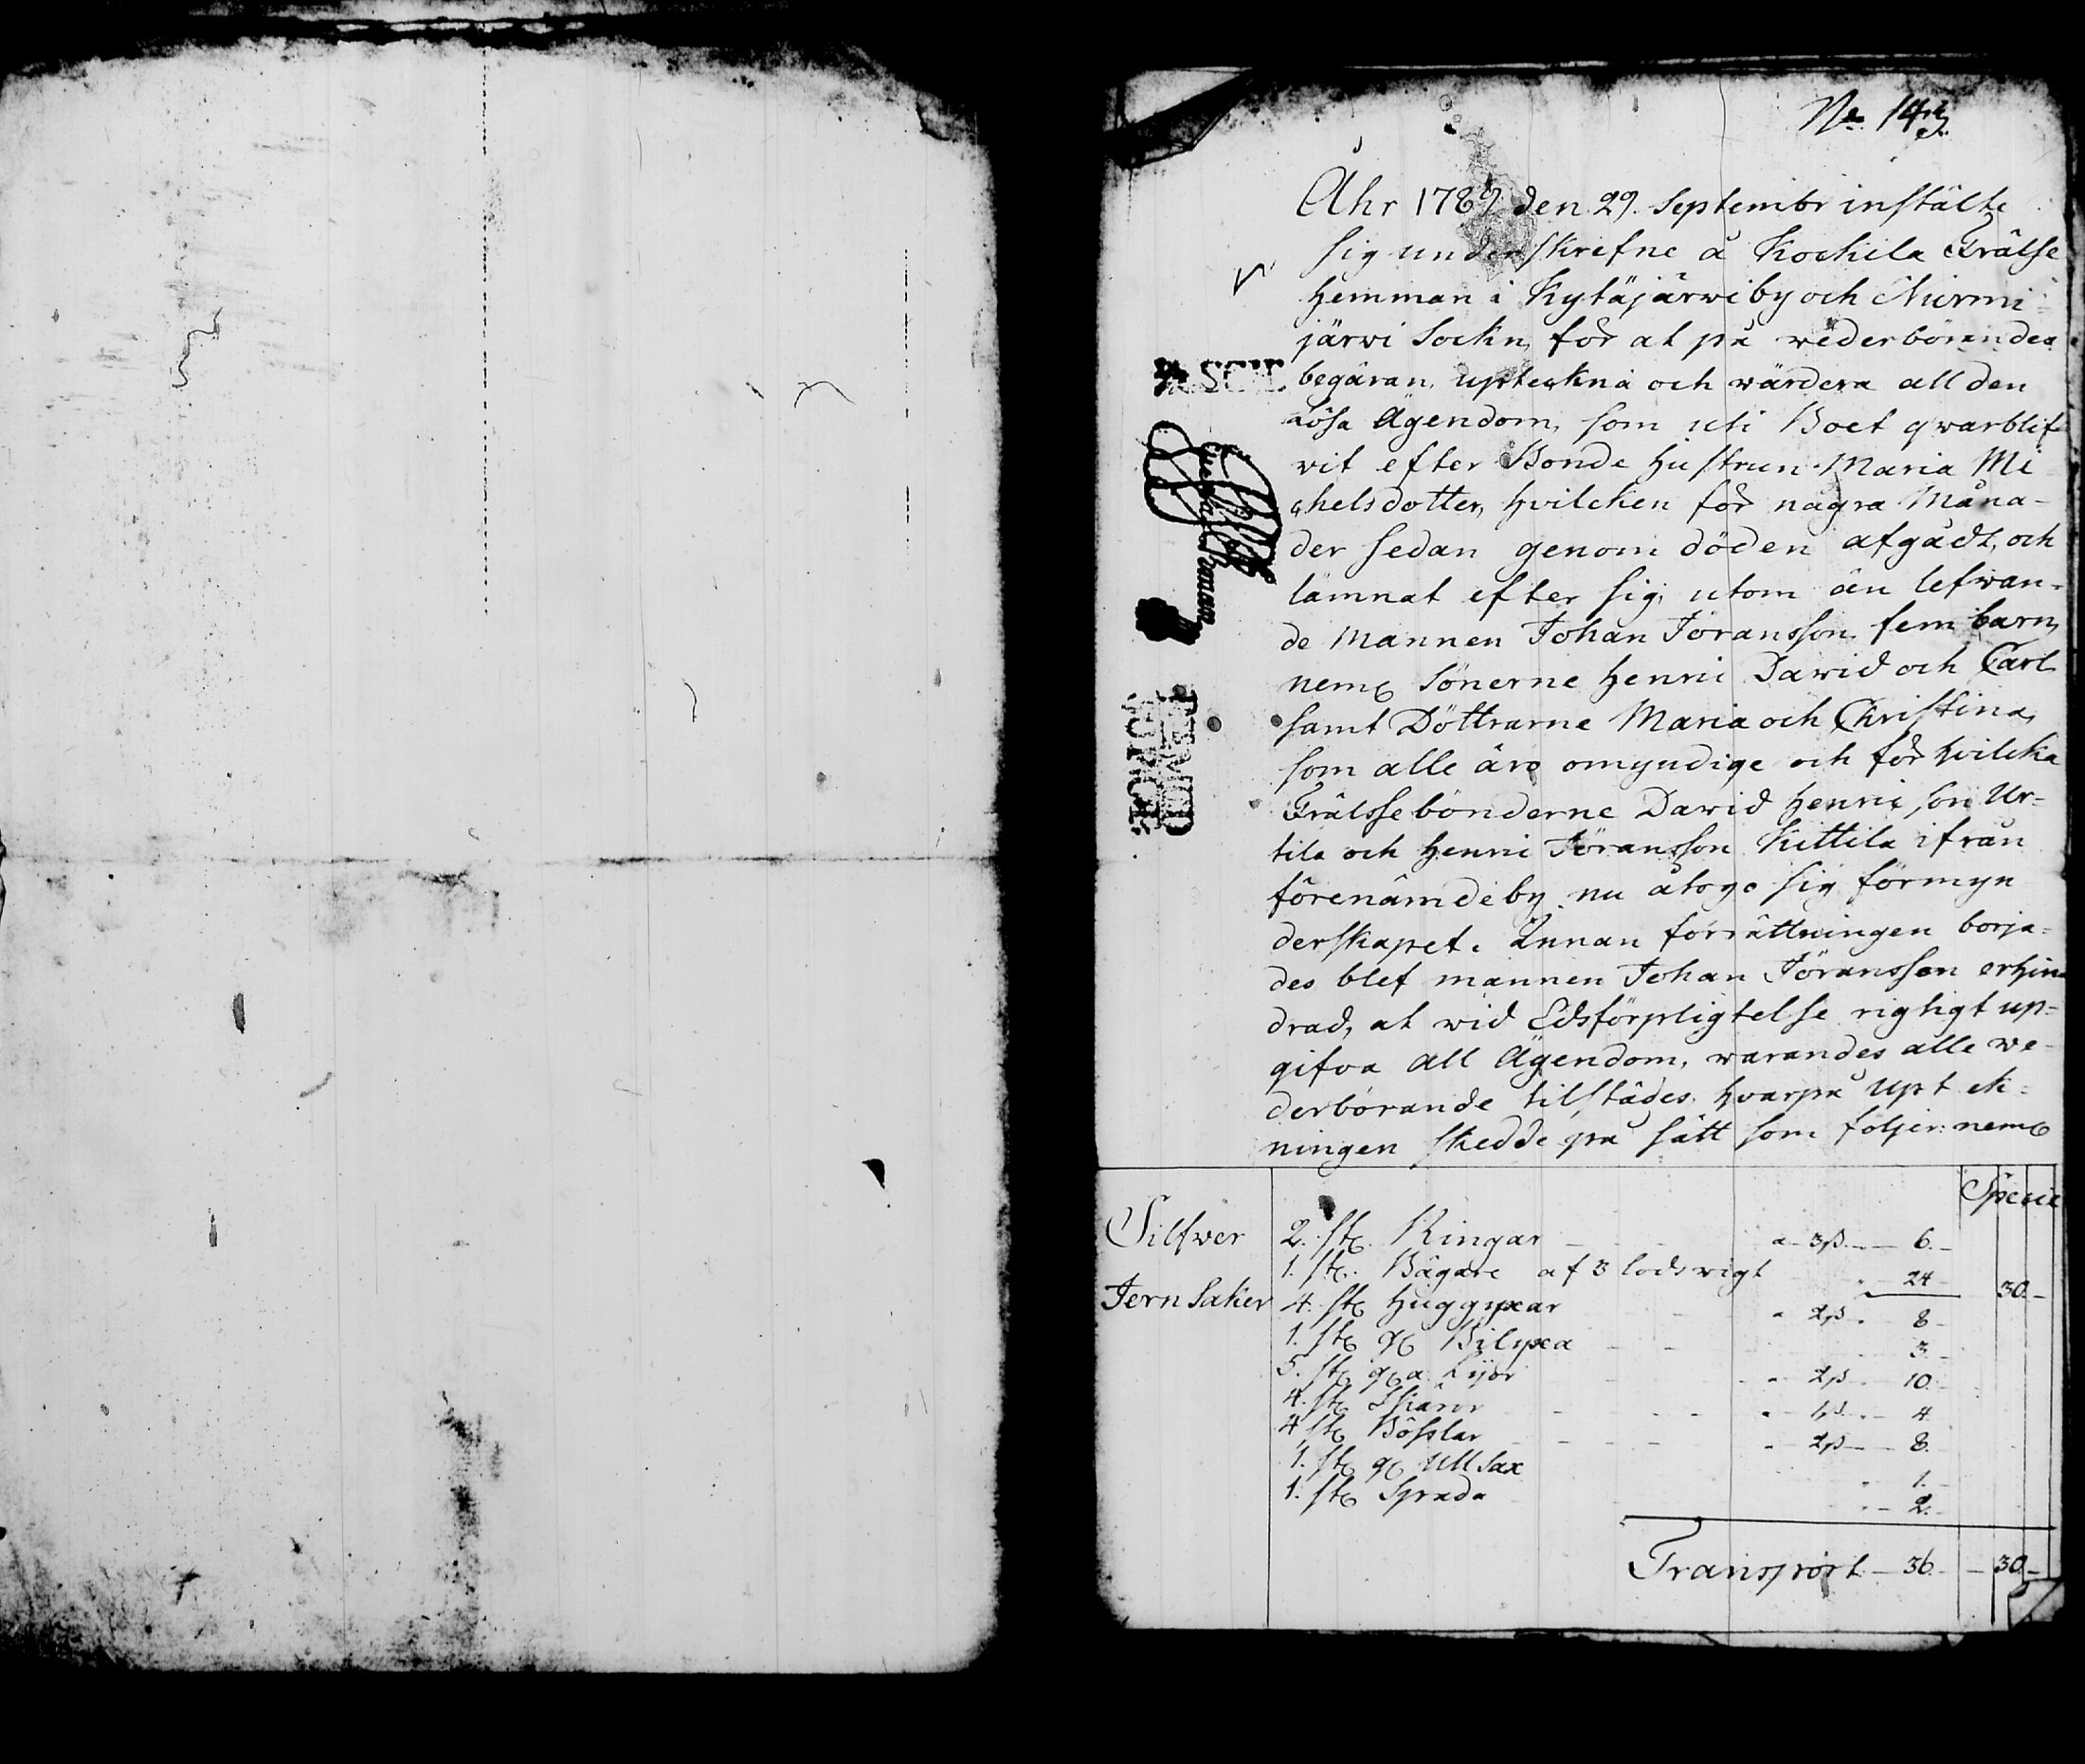 No 143.
Åhr 1789 den 29. Septembr instälte
sig underskrefne å Kockila Frälse
hemman i Kytäjärwi by och Nurmi-
järwi Sockn, för at på wederbörandes
begäran, upteckna och wärdera all den
Lösa Ägendom, som uti Boet qwarblif-
vit efter Bonde hustrun Maria Mi-
chelsdotter, hvilcken för några Måna-
der sedan genom döden afgådt, och
lämnat efter sig, utom än lefwan-
de Mannen Johan Jöransson, fem barn,
neml Sönerne Henric David och Carl
samt Döttrarne Maria och Christina,
som alle äro omyndige och för hvilcka
Frälsse bönderne David Henricson Ur-
tila och Henric Jöransson Kittila ifrån
förenämde by nu åtogo sig förmyn
derskapet. Innan förrättningen börja-
des blef mannen Johan Jöransson erhin-
drad, at wid Edsförpligtelse rigtigt up-
gifva all Ägendom, warandes alle we-
derbörande tilstädes. hvarpå Uptek-
ningen skedde på sätt som följer: neml
Specie
Silfwer 2. st Ringar - - - a 3ß - 6.-
1. st. Bägare af 3 lods wigt - 24 - 30.-
Jern Saker 4. st Huggyxar - a 2ß - 8-
1. st gl Bilyxa - - 3.-
5. st gla Lijor - - 2ß - 10.-
4. st Skäror - - - 1ß - 4
4 st Bösslar - - - 2ß - 8.-
1. st gl Ull Sax - 1.-
1. st Spada - 2.-
Transport - 36.- - 30.-